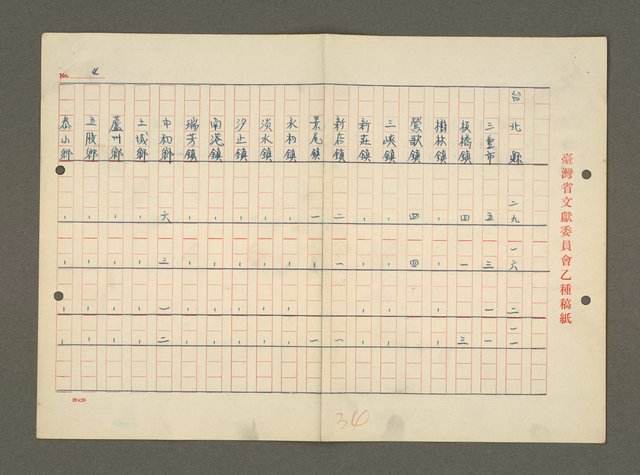 臺灣省文獻委員會乙種稿紙
台北縣 二九 一六 二 一一
三重市 五 三 一 一
板橋鎮 四 一 , 三
樹林鎮 , , , ,
鶯歌鎮 四 四 , ,
三峽鎮 , , , ,
新莊鎮 , , , ,
新店鎮 二 一 , 一
景尾鎮 一 , , 一
永和鎮 , , , ,
淡水鎮 , , , ,
汐止鎮 , , , ,
南港鎮 , , , ,
瑞芳鎮 , , , ,
中和鄉 六 三 一 二
土城鄉 , , , ,
蘆州鄉 , , , ,
五股鄉 , , , ,
泰山鄉 , , , ,
No. 4
20x20
34